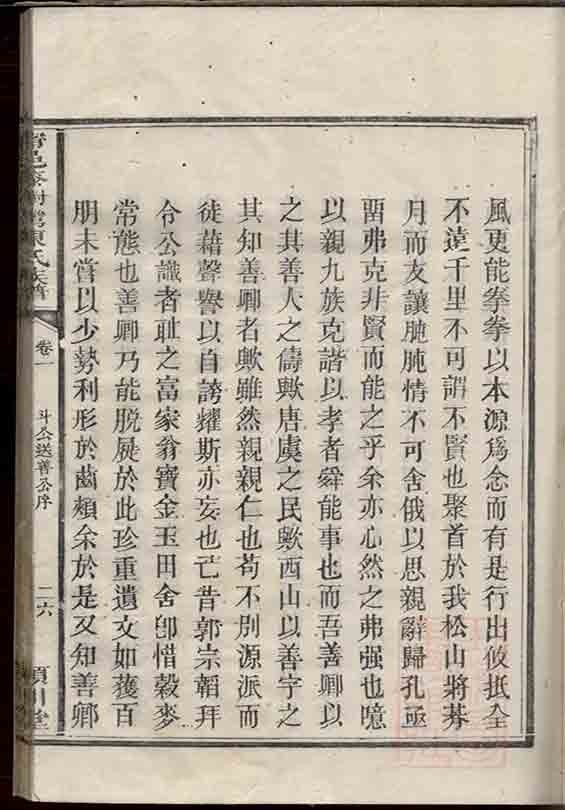 風更能拳拳以本源爲念而有是行出攸抵全
不遠千里不可謂不賢也聚首於我松山將朞
月而友讓肫肫情不可舍俄以思親辭歸孔亟
畱弗克非賢而能之乎余亦心然之弗强也噫
以親九族克諧以孝者舜能事也而吾善卿以
之其善人之儔歟唐虞之民歟西山以善字之
其知善卿者歟雖然親親仁也苟不别源派而
徒藉聲譽以自誇耀斯亦妄也已昔郭宗韜拜
令公識者耻之富家翁寶金玉田舍卽惜穀麥
常態也善卿乃能脫屣於此珍重遺文如獲百
朋未嘗以少勢利形於齒頰余於是又知善卿
氏族譜
卷一
斗公送善公序
二六
潁川堂